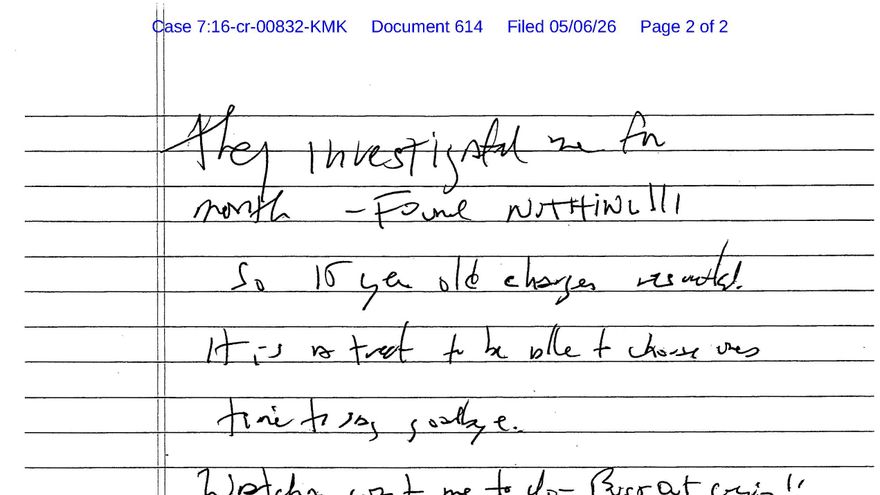 Case 7:16-cr-00832-KMK Document 614 Filed 05/06/26 Page 2 of 2
They investigated me for
month - Found NOTHING!!!
So 15 year old charges resulted.
It is a treat to be able to choose ones
time to say goodbye.
Watcha want me to do - Bust out cryin!!